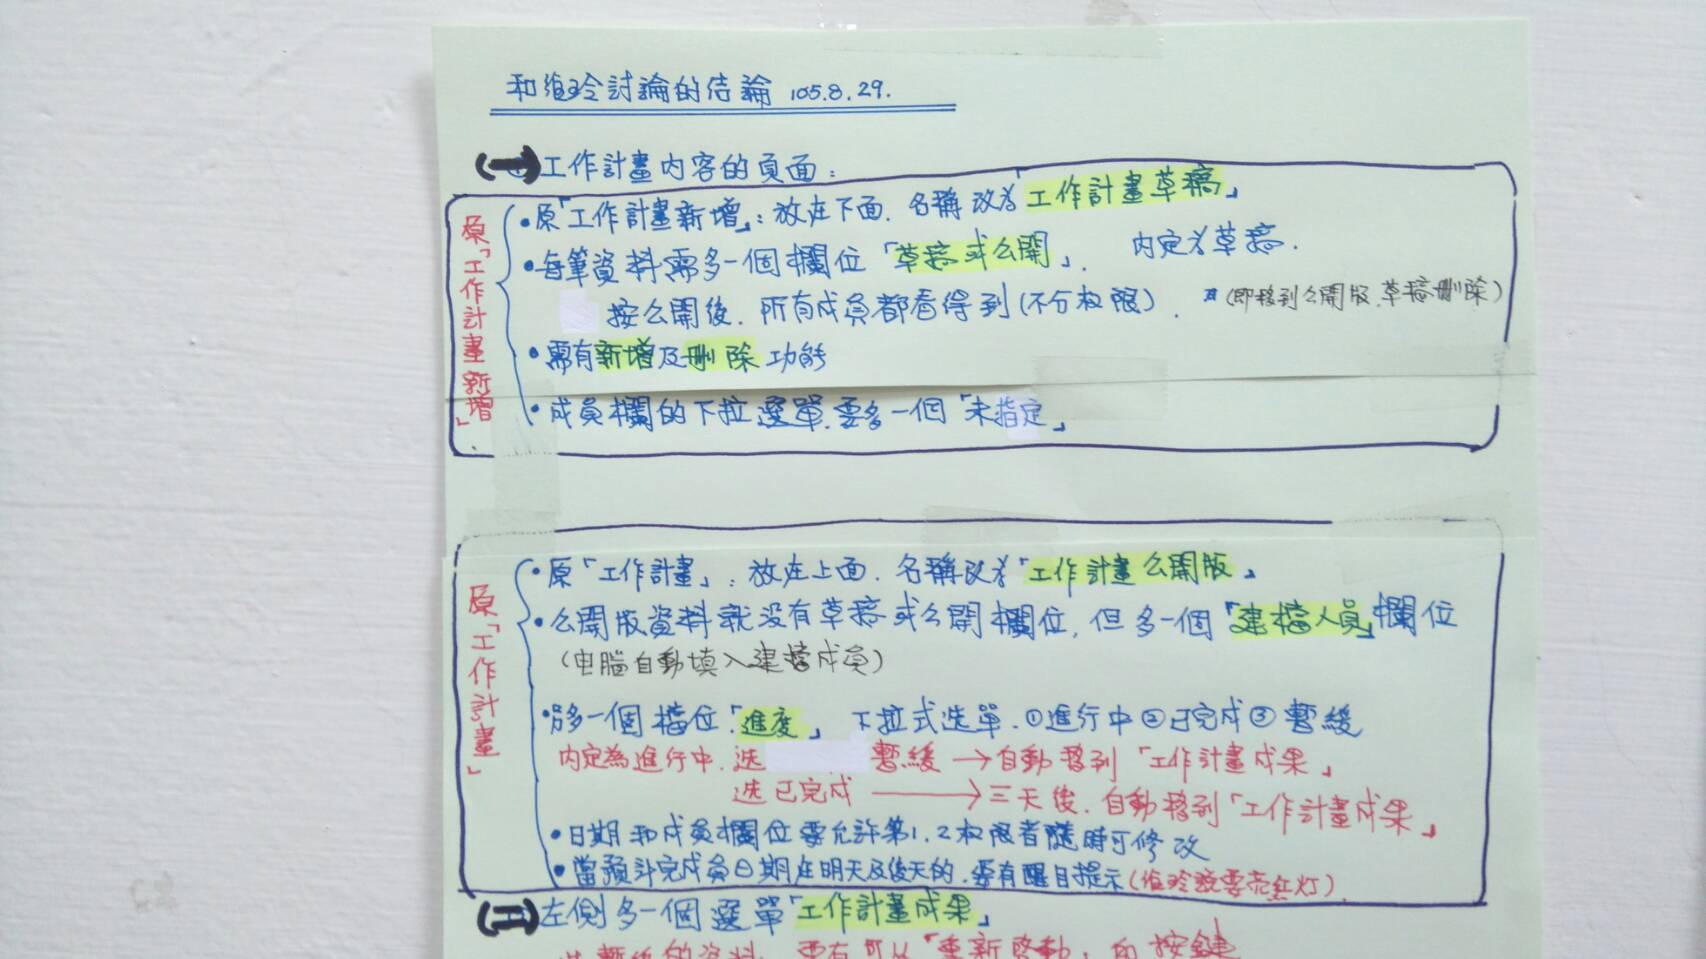 和維玲討論的結論 105.8.29.
(一)工作計畫內容的頁面：
原「工作計畫新增」
•原「工作計畫新增」：放在下面. 名稱改為「工作計畫草稿」
•每筆資料需多一個欄位「草稿或公開」. 內定為草稿.
按公開後. 所有成員都看得到(不分权限). (即移到公開版.草稿刪除)
•需有新增及刪除功能
•成員欄的下拉選單.要多一個「未指定」
原「工作計畫」
•原「工作計畫」：放在上面. 名稱改為「工作計畫公開版」
•公開版資料就没有草稿或公開欄位, 但多一個「建檔人員」欄位
(电腦自動填入建檔成員)
•多一個檔位「進度」 下拉式選單.①進行中②已完成③暫緩
內定為進行中. 选 暫緩→自動移到「工作計畫成果」
选已完成→三天後.自動移到「工作計畫成果」
•日期和成員欄位要允許第1.2权限者隨時可修改
•當預計完成員日期在明天及後天的.要有醒目提示(維玲說要亮紅灯)
(二)左側多一個選單「工作計畫成果」
暫緩的資料 要有可以「重新啟動」的按鍵